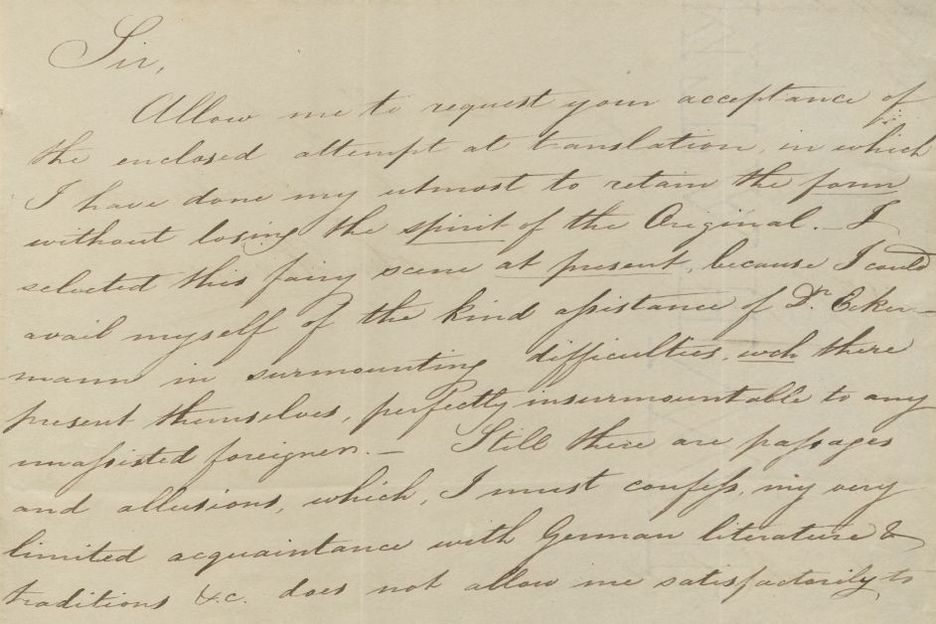 Sir,
Allow me to request your acceptance of
the enclosed attempt at translation, in which
I have done my utmost to retain the form
without losing the spirit of the Original. — I
selected this fairy scene at present, because I could
avail myself of the kind assistance of Dr. Ecker-
mann in surmounting difficulties, wch there
present themselves, perfectly insurmountable to any
unassisted foreigner. — Still there are passages
and allusions, which, I must confess, my very
limited acquaintance with German literature &
traditions &.c. does not allow me satisfactorily to